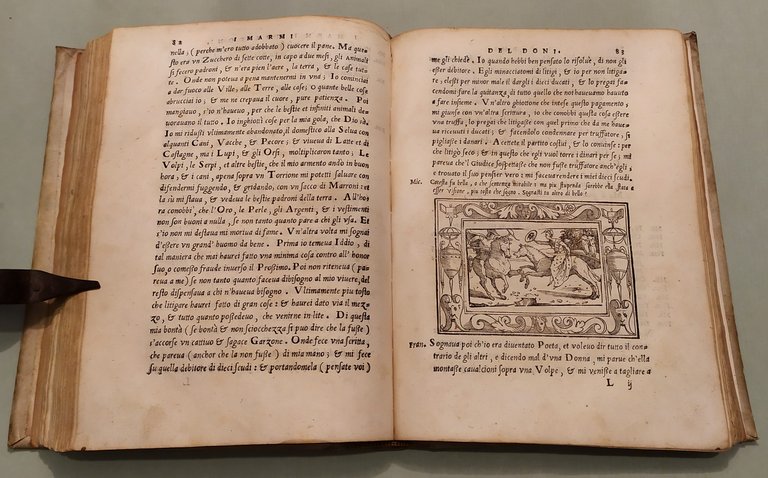 82 I MARMI
nella; (perche m'ero tutto adobbato) cuocere il pane. Ma que-
sto era vn Zucchero di sette cotte, in capo a due mesi, gli Animali
si fecero padroni, & n'era pien l'aere, la terra, & le case tut-
te. Onde non poteua a pena mantenermi in vna; Io cominciai
a dar fuoco alle Ville, alle Terre, alle case; o quante belle cose
abrucciai io; & me ne crepaua il cuore, pur patienza. Poi
mangiauo, s'io n'haueuo, per che le bestie et infiniti animali de-
uorauano il tutto. Io inghiotì cose per la mia gola, che Dio'l sà.
Io mi ridussi vltimamente abandonato, il domestico alla Selua con
alquanti Cani, Vacche, & Pecore; & viueua di Latte et di
Castagne, ma i Lupi, & gli Orsi, moltiplicaron tanto; Le
Volpi, le Serpi, et altre bestie, che il mio armento andò in buon
hora; & i cani, apena sopra vn Torrione mi potetti saluare con
difendermi fuggendo, & gridando, con vn sacco di Marroni: et
la sù mi staua, & vedeua le bestie padroni della terra. All'ho
ra conobbi, che l'Oro, le Perle, gli Argenti, & i vestimenti
non son buoni a nulla, se non tanto quanto pare a chi gli vsa. Et
s'io non mi destaua mi moriua di fame. Vn'altra volta mi sognai
d'essere vn grand' huomo da bene. Prima io temeua Iddio, di
tal maniera che mai haurei fatto vna minima cosa contro all'honor
suo, o comesso fraude inuerso il Prossimo. Poi non riteneua (pa
reua a me) se non tanto quanto faceua dibisogno al mio viuere, del
resto dispensaua a chi n'haueua bisogno. Vltimamente piu tosto
che litigare haurei fatto di gran cose: & haurei dato via il mez-
zo, & tutto quanto possedeuo, che venirne in lite. Di questa
mia bontà (se bontà & non sciocchezza si può dire che la fusse)
s'accorse vn cattiuo & sagace Garzone. Onde fece vna scritta,
che pareua (anchor che la non fusse) di mia mano; & mi fece
su quella debitore di dieci scudi: & portandomela (pensate voi)
DEL DONI. 83
me gli chiedè. Io quando hebbi ben pensato lo risoluè, di non gli
esser debitore. Egli minacciatomi di litigi, & io per non litiga-
re; elessi per minor mal di dargli sei ducati; & lo pregai fa-
cendomi far la quitanza di tutto quello che noi haueuamo hauuto
a fare insieme. Vn'altro ghiottone che intese questo pagamento,
mi giunse con vn'altra scrittura, io che conobbi questa cosa essere
vna truffa. Io pregai che litigasse con quel primo che da me haue
ua riceuuti i ducati; & facendolo condennare per truffatore, si
pigliasse i danari. Accettè il partito costui, & lo cominse: per
che litigò seco; & in questo che egli vuol torre i dinari per se; pa
reua che'l Giudice sospettasse che non fusse truffatore anch'egli,
e trouato il suo pensier vero: mi faceua rendere i miei dieci scudi.
Mic. Cotesta fu bella, e che sentenza mirabile; ma piu stupenda sarebbe ella stata a
esser Visione, piu tosto che sogno. Sognasti tu altro di bello?
Fran. Sognaua poi ch'io era diuentato Poeta, et voleuo dir tutto il con-
trario de gli altri, e dicendo mal d'vna Donna, mi parue ch'ella
montasse caualcioni sopra vna Volpe, & mi venisse a tagliare a
L ij